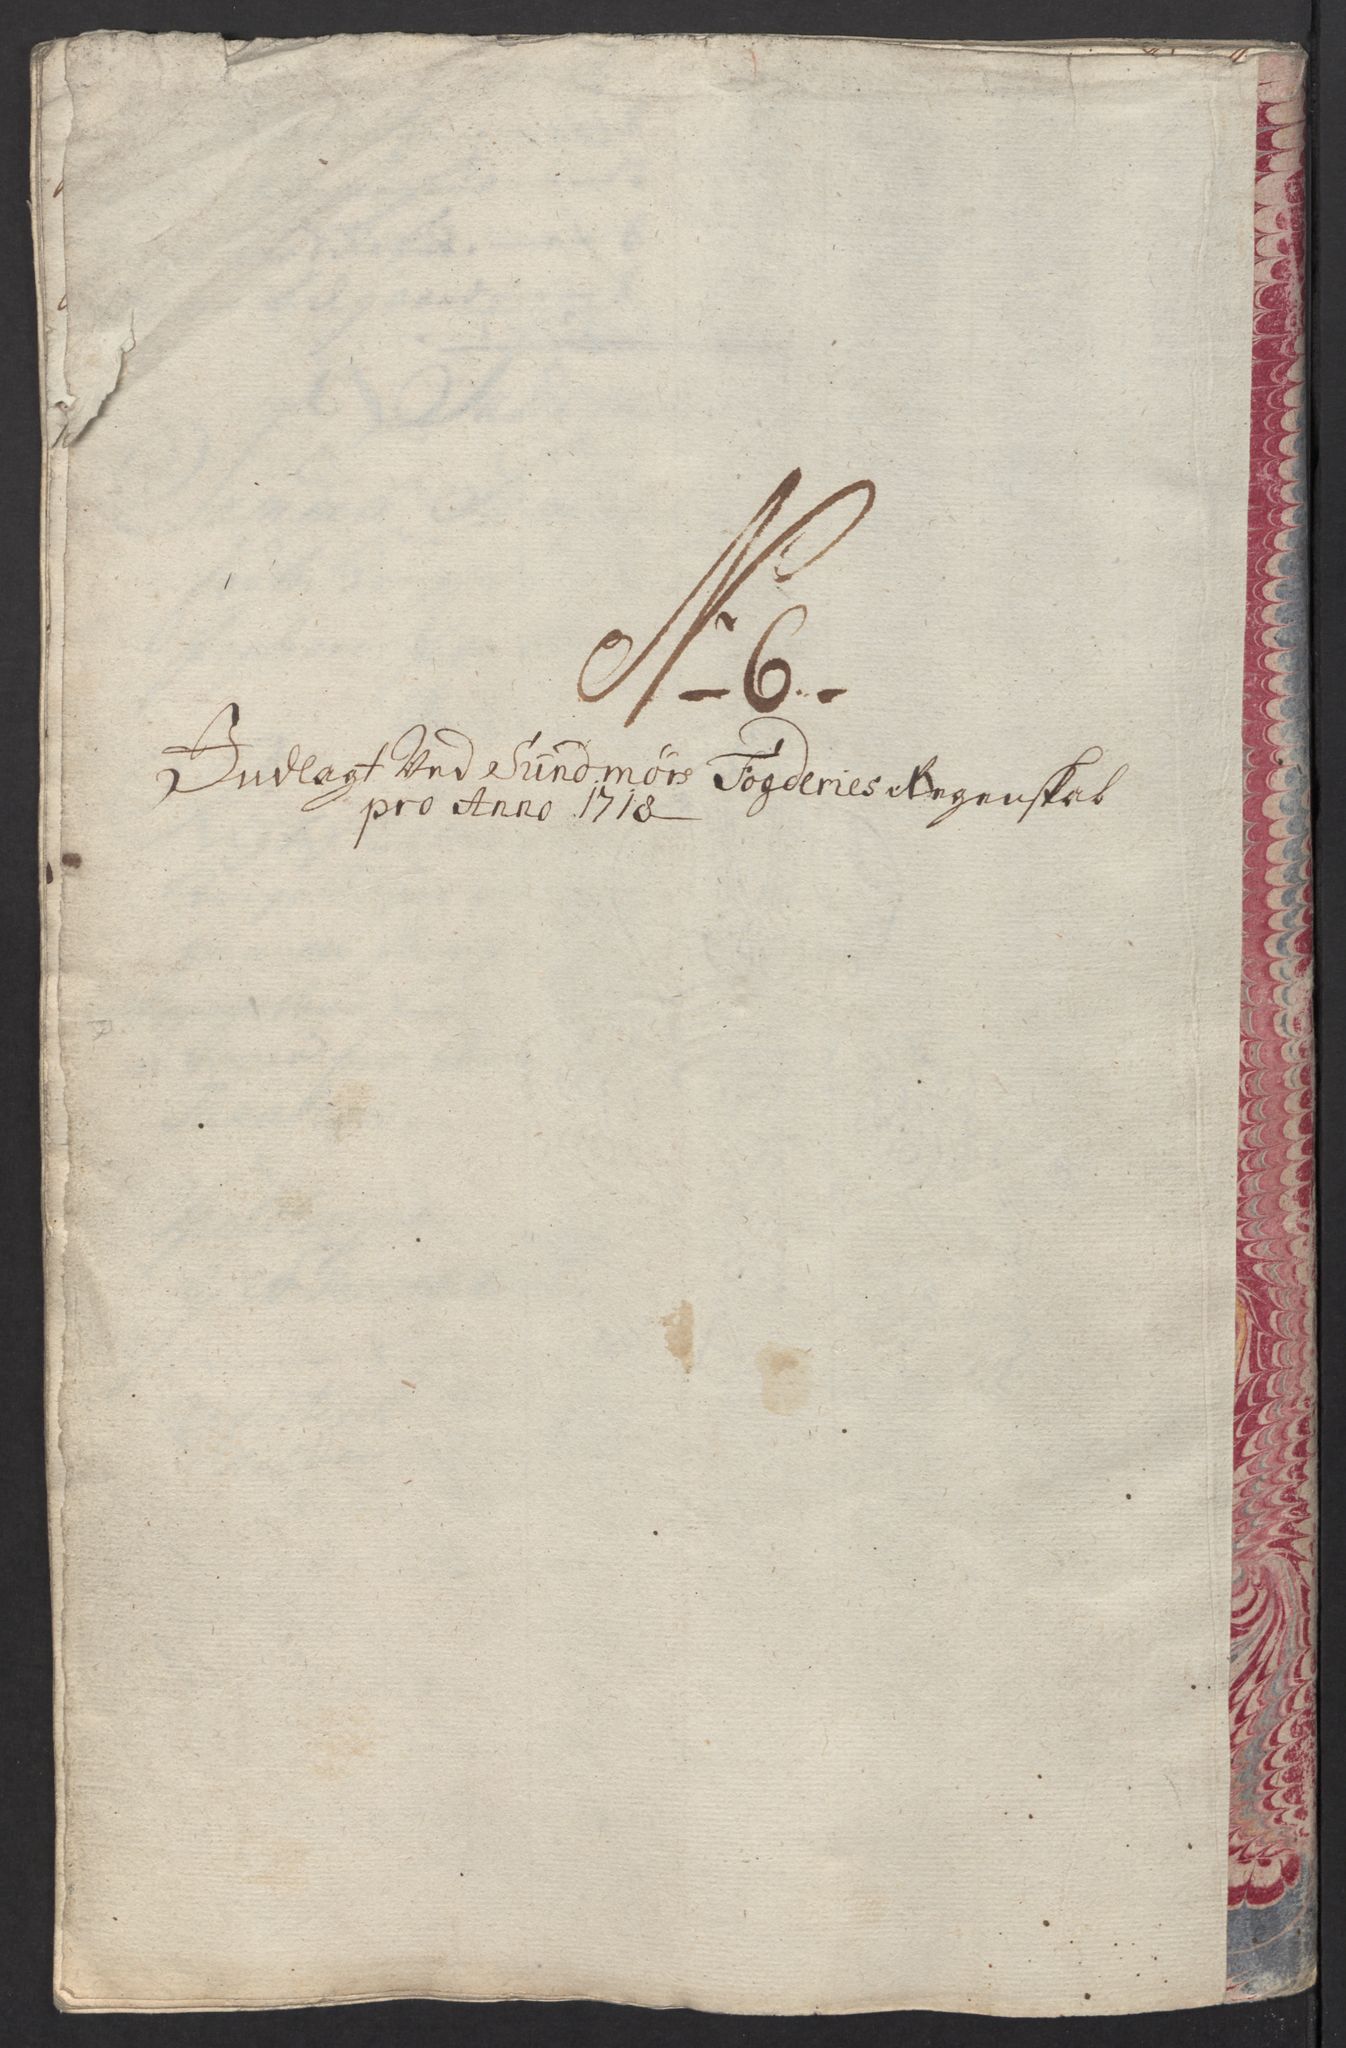 N 6.
Indlagt Ved Sundmörs Fogderies Regenskab
pro Anno 1718